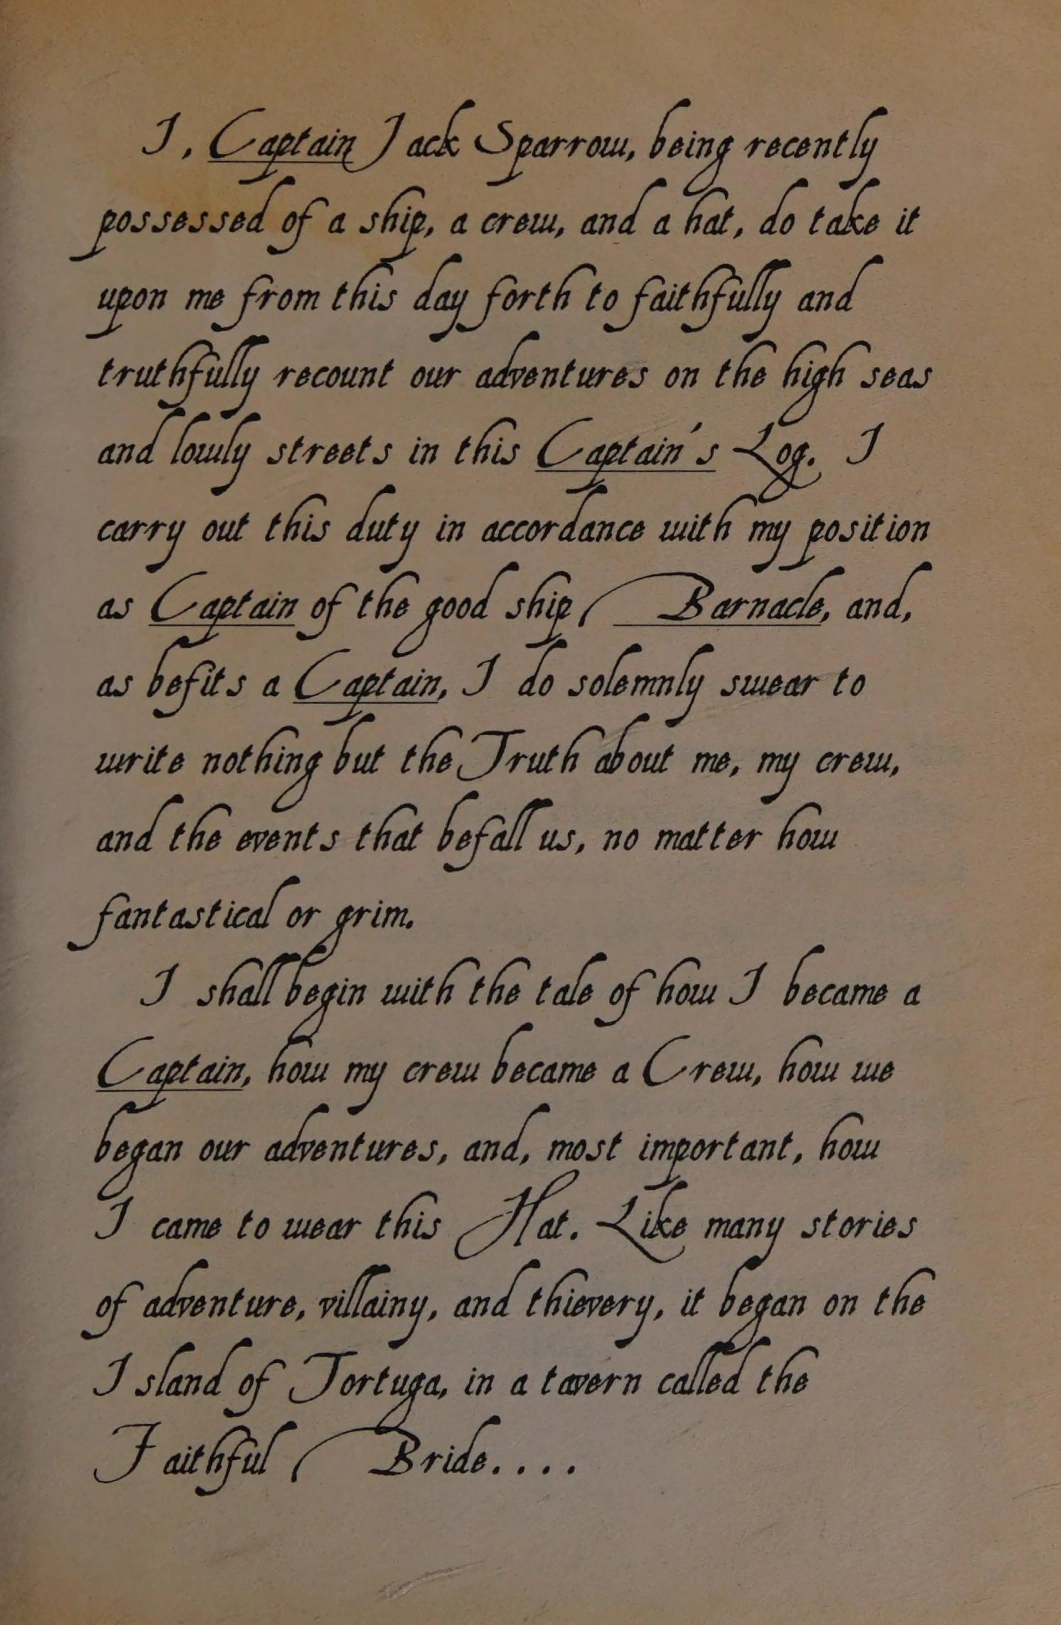 I, Captain Jack Sparrow, being recently
possessed of a ship, a crew, and a hat, do take it
upon me from this day forth to faithfully and
truthfully recount our adventures on the high seas
and lowly streets in this Captain's Log. I
carry out this duty in accordance with my position
as Captain of the good ship Barnacle, and,
as befits a Captain, I do solemnly swear to
write nothing but the Truth about me, my crew,
and the events that befall us, no matter how
fantastical or grim.
I shall begin with the tale of how I became a
Captain, how my crew became a Crew, how we
began our adventures, and, most important, how
I came to wear this Hat. Like many stories
of adventure, villainy, and thievery, it began on the
Island of Tortuga, in a tavern called the
Faithful Bride....